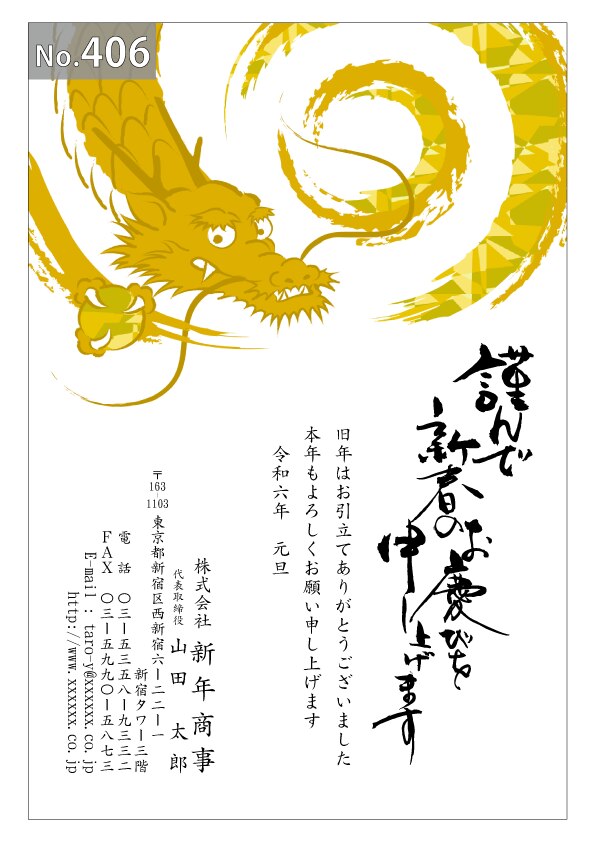 No.406
謹んで
新春の
お慶びを
申し上げます
旧年はお引立てありがとうございました
本年もよろしくお願い申し上げます
令和六年 元旦
株式会社 新年商事
代表取締役 山田 太郎
〒163-1103 東京都新宿区西新宿六ー二二ー一
新宿タワー三階
電話 〇三ー五三五八ー九三三二
FAX 〇三ー五九九〇ー五八七三
E-mail : taro-y@xxxxxx.co.jp
http://www.xxxxxx.co.jp